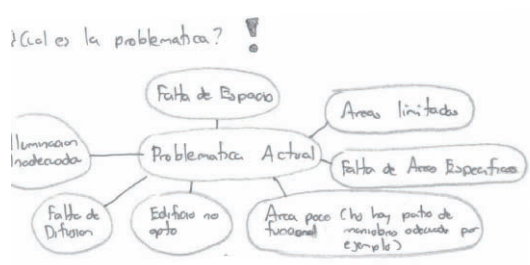 ¿Cual es la problematica?
Falta de Espacio
Areas limitadas
Iluminacion
Inadecuada
Problematica Actual
Falta de Areas Especificas
Falta de
Difusion
Edificio no
apto
Area poco (no hay patio de
funcional maniobras adecuado por
ejemplo)